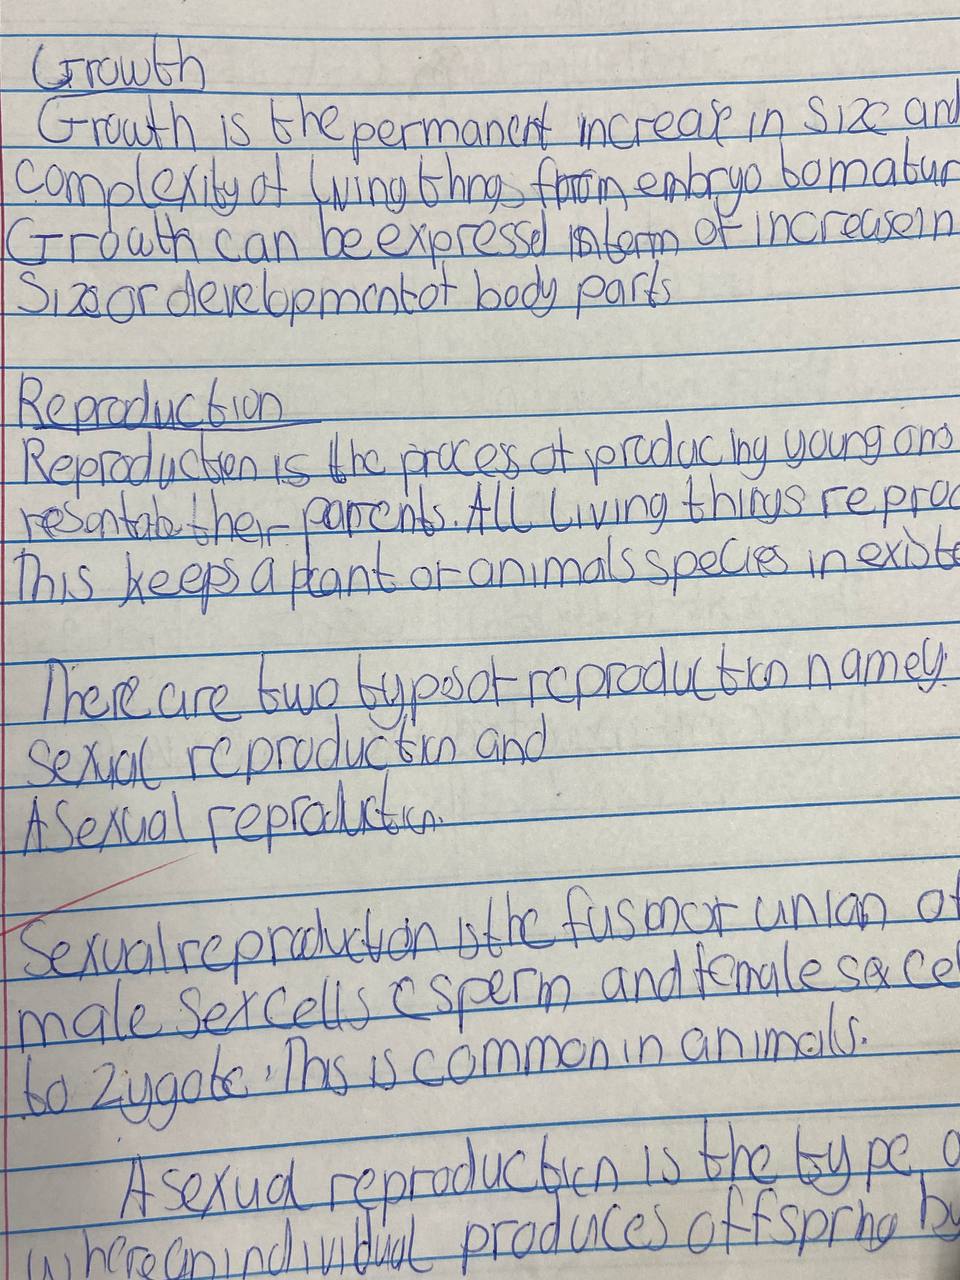 Growth
Growth is the permanent increase in size and
complexity of living thngs from embryo to matur
Growth can be expressed interm of increase in
Size or development of body parts
Reproduction
Reproduction is the proces of producing young ons
their parents. All Living things reproc
This keeps a plant or animals species in existe
There are two types of reproduction namely:
Sexual reproduction and
Asexual reproduction.
Sexual reproduction is the fusion or union of
male sex cells (sperm and female sex cel
to zygote. This is common in animals.
Asexual reproduction is the type o
where an individual produces offspring by